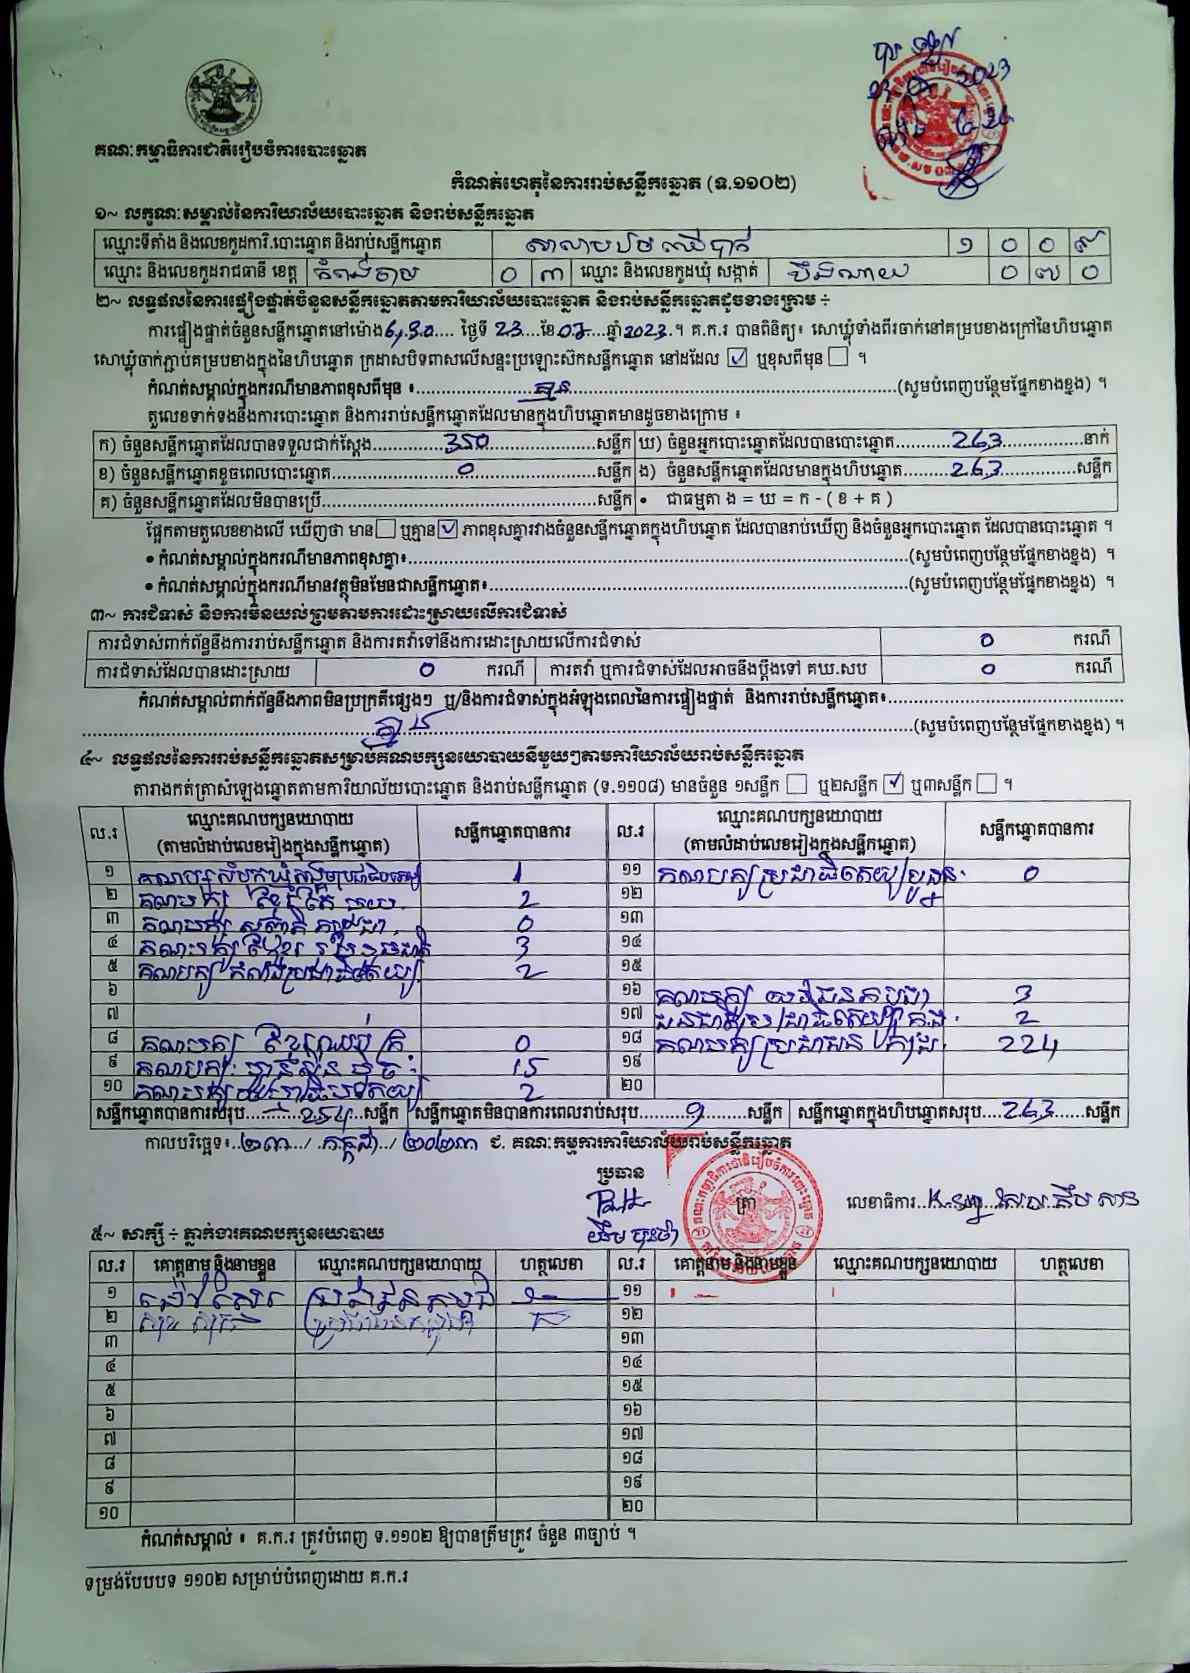 គណៈកម្មាធិការជាតិរៀបចំការបោះឆ្នោត
2023
កំណត់ហេតុនៃការរាប់សន្លឹកឆ្នោត (ទ.១១០២)
១~ លក្ខណៈសម្គាល់នៃការិយាល័យបោះឆ្នោត និងរាប់សន្លឹកឆ្នោត
ឈ្មោះទីតាំង និងលេខកូដការិ.បោះឆ្នោត និងរាប់សន្លឹកឆ្នោត ១ ០ ០ ៩
ឈ្មោះ និងលេខកូដរាជធានី ខេត្ត កំពង់ចាម ០ ៣ ឈ្មោះ និងលេខកូដឃុំ សង្កាត់ បឹងណាយ ០ ៧ ០
២~ លទ្ធផលនៃការផ្ទៀងផ្ទាត់ចំនួនសន្លឹកឆ្នោតតាមការិយាល័យបោះឆ្នោត និងរាប់សន្លឹកឆ្នោតដូចខាងក្រោម ÷
ការផ្ទៀងផ្ទាត់ចំនួនសន្លឹកឆ្នោតនៅម៉ោង6,30.... ថ្ងៃទី 23...ខែ07...ឆ្នាំ2023.។ គ.ក.រ បានពិនិត្យ៖ សោឃ្លុំទាំងពីរចាក់នៅគម្របខាងក្រៅនៃហិបឆ្នោត
សោឃ្លុំចាក់ភ្ជាប់គម្របខាងក្នុងនៃហិបឆ្នោត ក្រដាសបិទពាសលើសន្ទះប្រឡោះស៊កសន្លឹកឆ្នោត នៅដដែល ☑ ឬខុសពីមុន ☐ ។
កំណត់សម្គាល់ក្នុងករណីមានភាពខុសពីមុន ៖...........គ្មាន...........(សូមបំពេញបន្ថែមផ្នែកខាងខ្នង) ។
តួលេខទាក់ទងនឹងការបោះឆ្នោត និងការរាប់សន្លឹកឆ្នោតដែលមានក្នុងហិបឆ្នោតមានដូចខាងក្រោម ៖
ក) ចំនួនសន្លឹកឆ្នោតដែលបានទទួលជាក់ស្តែង......350......សន្លឹក ឃ) ចំនួនអ្នកបោះឆ្នោតដែលបានបោះឆ្នោត......263......នាក់
ខ) ចំនួនសន្លឹកឆ្នោតខូចពេលបោះឆ្នោត......0......សន្លឹក ង) ចំនួនសន្លឹកឆ្នោតដែលមានក្នុងហិបឆ្នោត......263......សន្លឹក
គ) ចំនួនសន្លឹកឆ្នោតដែលមិនបានប្រើ............សន្លឹក • ជាធម្មតា ង = ឃ = ក - ( ខ + គ )
ផ្អែកតាមតួលេខខាងលើ ឃើញថា មាន☐ ឬគ្មាន☑ ភាពខុសគ្នារវាងចំនួនសន្លឹកឆ្នោតក្នុងហិបឆ្នោត ដែលបានរាប់ឃើញ និងចំនួនអ្នកបោះឆ្នោត ដែលបានបោះឆ្នោត ។
• កំណត់សម្គាល់ក្នុងករណីមានភាពខុសគ្នា៖............(សូមបំពេញបន្ថែមផ្នែកខាងខ្នង) ។
• កំណត់សម្គាល់ក្នុងករណីមានវត្ថុមិនមែនជាសន្លឹកឆ្នោត៖............(សូមបំពេញបន្ថែមផ្នែកខាងខ្នង) ។
៣~ ការជំទាស់ និងការមិនយល់ព្រមតាមការដោះស្រាយលើការជំទាស់
ការជំទាស់ពាក់ព័ន្ធនឹងការរាប់សន្លឹកឆ្នោត និងការតវ៉ាទៅនឹងការដោះស្រាយលើការជំទាស់ 0 ករណី
ការជំទាស់ដែលបានដោះស្រាយ 0 ករណី ការតវ៉ា ឬការជំទាស់ដែលអាចនឹងប្តឹងទៅ គឃ.សប 0 ករណី
កំណត់សម្គាល់ពាក់ព័ន្ធនឹងភាពមិនប្រក្រតីផ្សេងៗ ឬ/និងការជំទាស់ក្នុងអំឡុងពេលនៃការផ្ទៀងផ្ទាត់ និងការរាប់សន្លឹកឆ្នោត៖............
......គ្មាន......(សូមបំពេញបន្ថែមផ្នែកខាងខ្នង) ។
៤~ លទ្ធផលនៃការរាប់សន្លឹកឆ្នោតសម្រាប់គណបក្សនយោបាយនីមួយៗតាមការិយាល័យរាប់សន្លឹកឆ្នោត
តារាងកត់ត្រាសំឡេងឆ្នោតតាមការិយាល័យបោះឆ្នោត និងរាប់សន្លឹកឆ្នោត (ទ.១១០៨) មានចំនួន ១សន្លឹក ☐ ឬ២សន្លឹក ☑ ឬ៣សន្លឹក ☐ ។
ល.រ ឈ្មោះគណបក្សនយោបាយ (តាមលំដាប់លេខរៀងក្នុងសន្លឹកឆ្នោត) សន្លឹកឆ្នោតបានការ ល.រ ឈ្មោះគណបក្សនយោបាយ (តាមលំដាប់លេខរៀងក្នុងសន្លឹកឆ្នោត) សន្លឹកឆ្នោតបានការ
១ គណបក្សសំបុកឃ្មុំសង្គមប្រជាធិបតេយ្យ 1 ១១ គណបក្សប្រជាធិបតេយ្យមូលដ្ឋាន 0
២ គណបក្ស ខ្មែរតែមួយ 2 ១២
៣ គណបក្ស សញ្ជាតិកម្ពុជា 0 ១៣
៤ គណបក្ស ខ្មែររួបរួមជាតិ 3 ១៤
៥ គណបក្ស កម្លាំងប្រជាធិបតេយ្យ 2 ១៥
៦ ១៦ គណបក្ស យុវជនកម្ពុជា 3
៧ ១៧ 2
៨ គណបក្ស ខ្មែរឈប់ក្រ 0 ១៨ គណបក្សប្រជាជនកម្ពុជា 224
៩ គណបក្ស ហ្វ៊ុនស៊ិនប៉ិច 15 ១៩
១០ 2 ២០
សន្លឹកឆ្នោតបានការសរុប......254...សន្លឹក សន្លឹកឆ្នោតមិនបានការពេលរាប់សរុប......9......សន្លឹក សន្លឹកឆ្នោតក្នុងហិបឆ្នោតសរុប....263......សន្លឹក
កាលបរិច្ឆេទ៖..២៣.../ កក្កដា../ ២០២៣ ជ. គណៈកម្មការការិយាល័យរាប់សន្លឹកឆ្នោត
ប្រធាន
ត្រា
លេខាធិការ
៥~ សាក្សី ÷ ភ្នាក់ងារគណបក្សនយោបាយ
ល.រ គោត្តនាម និងនាមខ្លួន ឈ្មោះគណបក្សនយោបាយ ហត្ថលេខា ល.រ គោត្តនាម និងនាមខ្លួន ឈ្មោះគណបក្សនយោបាយ ហត្ថលេខា
១ ប្រជាជនកម្ពុជា ១១
២ ១២
៣ ១៣
៤ ១៤
៥ ១៥
៦ ១៦
៧ ១៧
៨ ១៨
៩ ១៩
១០ ២០
កំណត់សម្គាល់ ៖ គ.ក.រ ត្រូវបំពេញ ទ.១១០២ ឱ្យបានត្រឹមត្រូវ ចំនួន ៣ច្បាប់ ។
ទម្រង់បែបបទ ១១០២ សម្រាប់បំពេញដោយ គ.ក.រ